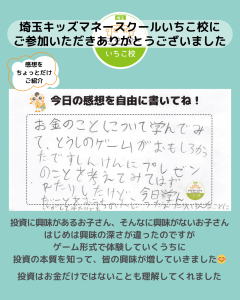 埼玉キッズマネースクールいちご校に
ご参加いただきありがとうございました
いちご校
感想を
ちょっとだけ
ご紹介
今日の感想を自由に書いてね！
お金のことについて学んでみ
て、とうしのゲームがおもしろかっ
たですしんけんにプレゼン
のことを考えてみてはず
かしかったりしたけど、今日学ん
投資に興味があるお子さん、そんなに興味がないお子さん
はじめは興味の深さが違ったのですが
ゲーム形式で体験していくうちに
投資の本質を知って、皆の興味が増していきました😊
投資はお金だけではないことも理解してくれました